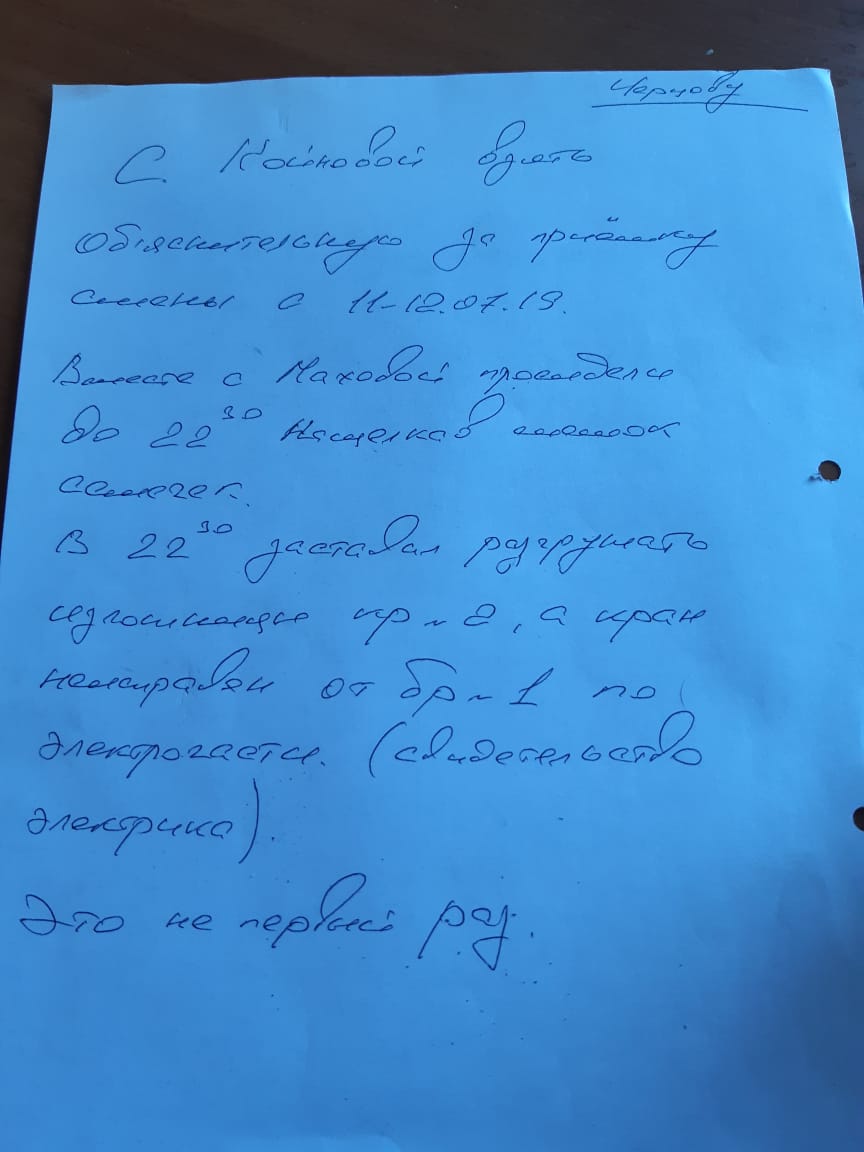 Чернову
С. Койновой взять
объяснительную за приёмку
смены с 11-12.07.19.
Вместе с Маховой просиделе
до 22³⁰ Нащелкав мешок
семечек.
В 22³⁰ заставил разгружать
кр ~ 2, а кран
неисправен от бр ~ 1 по
электрочасти. (свидетельство
электрика).
Это не первый раз.